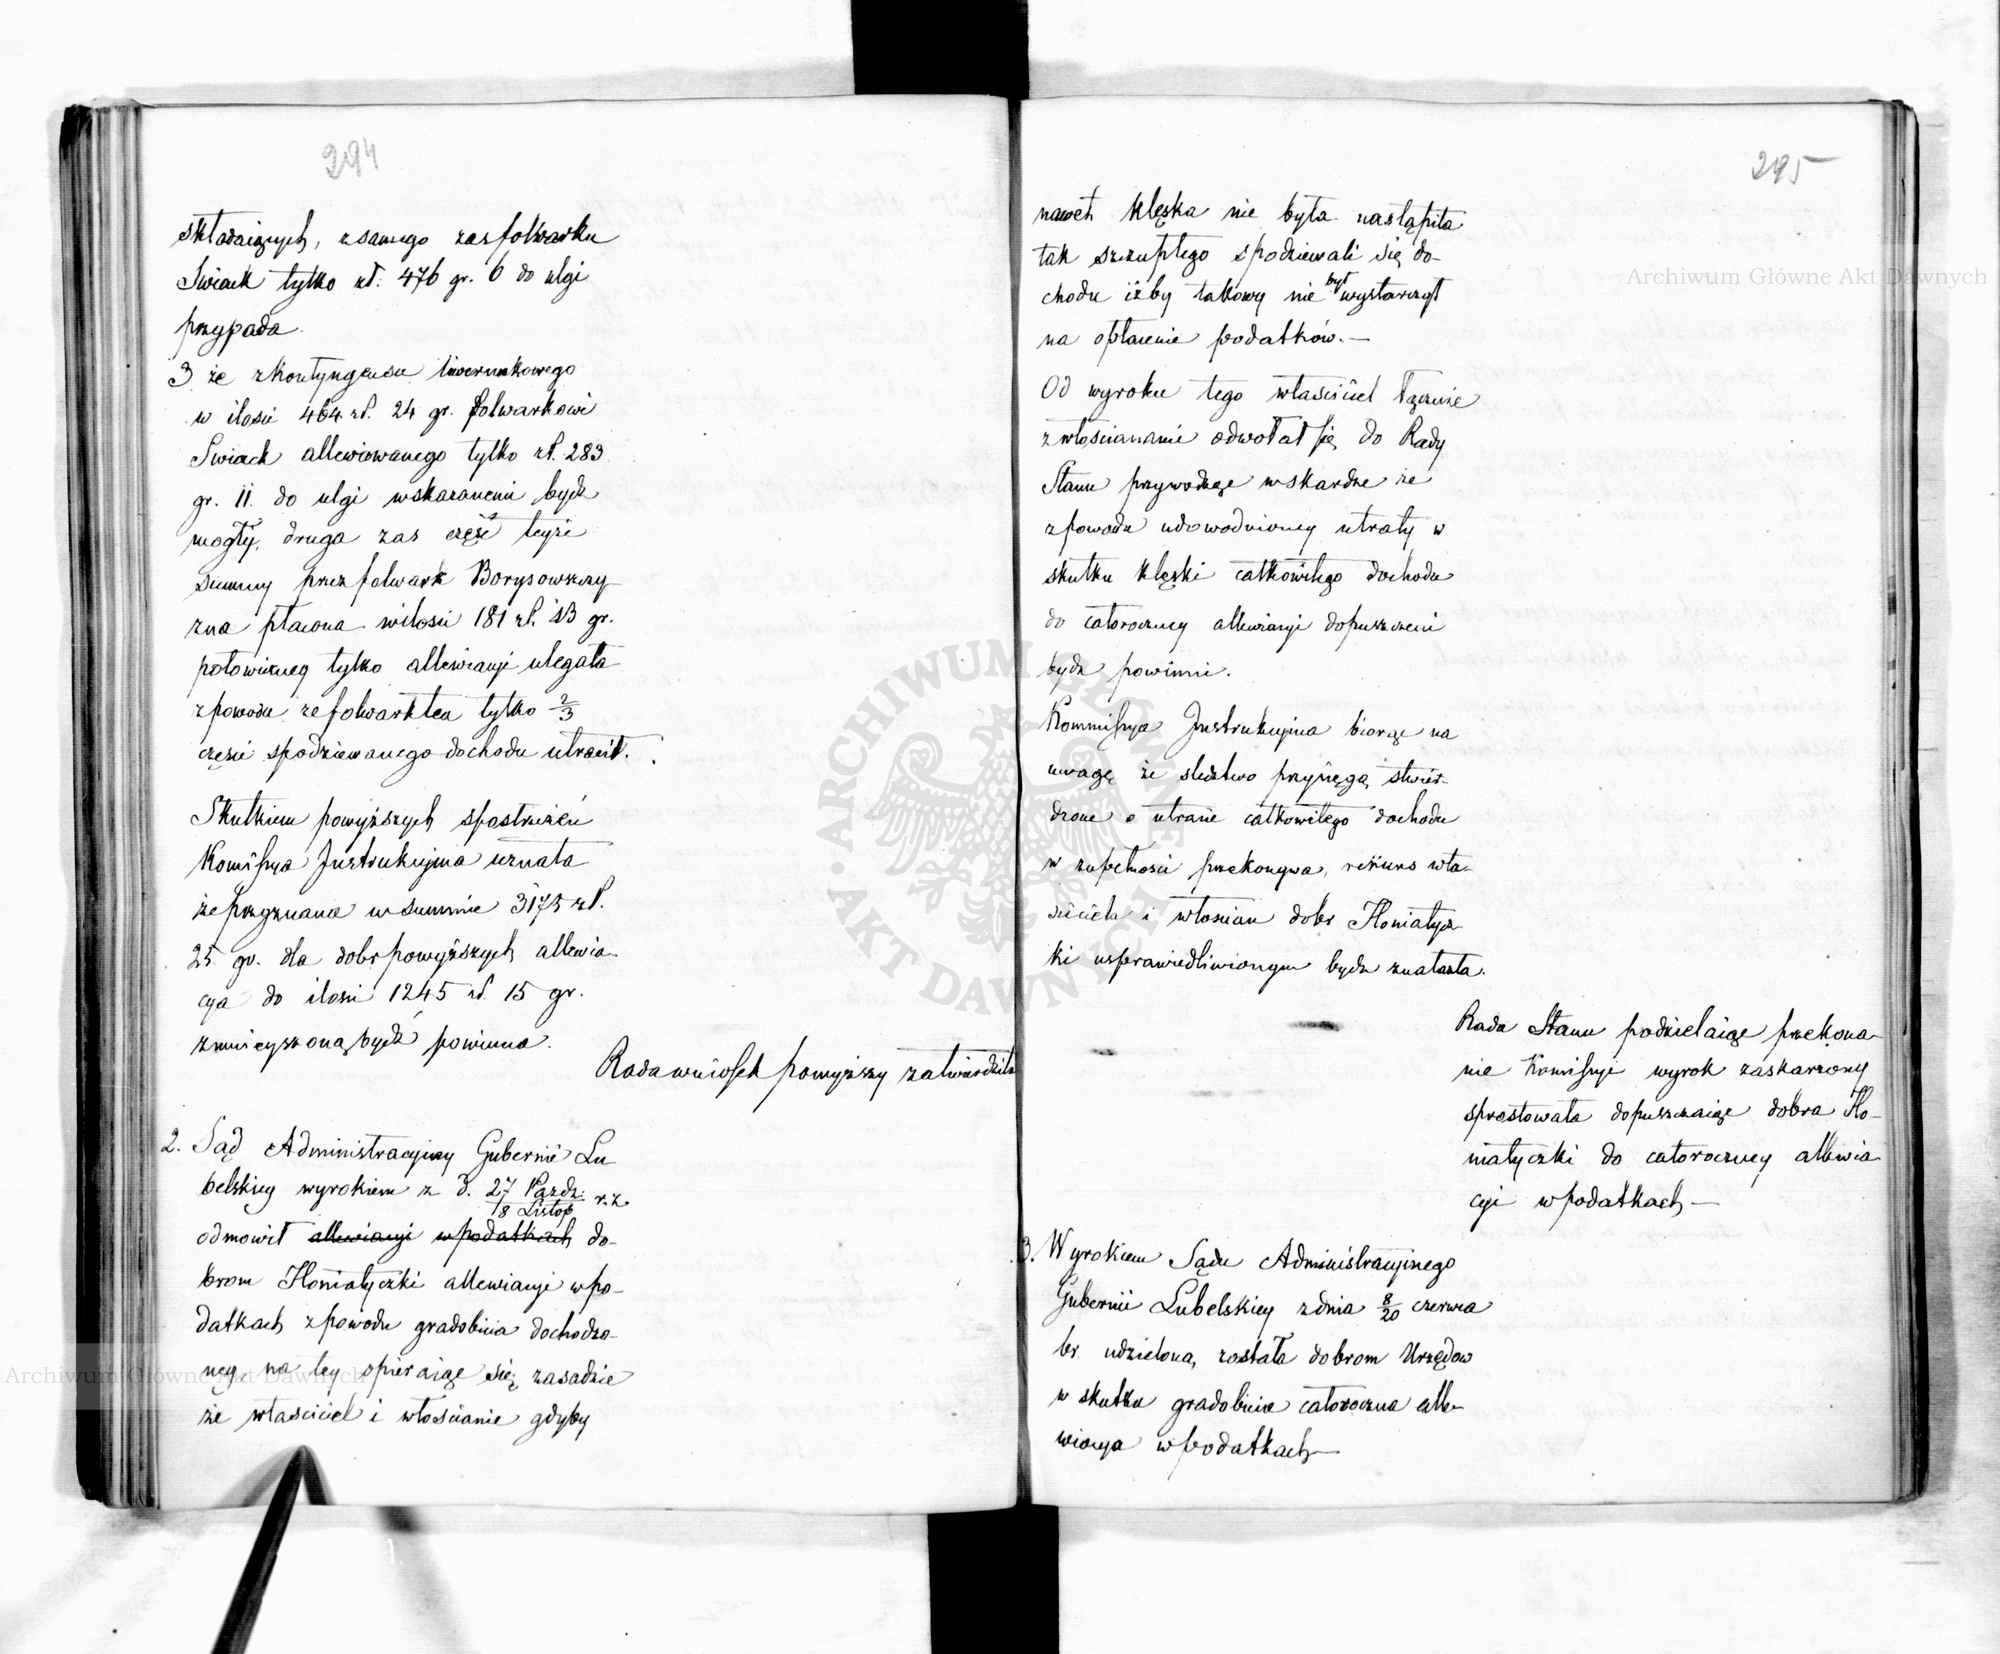 294
składaiących, zsamego zaś folwarku
Swiack tylko zł: 476 gr. 6 do ulgi
przypada.
3 że zkontyngensu liwerunkowego
w ilości 464 zł. 24 gr. folwarkowi
Swiack allewiowanego tylko zł. 283
gr. 11. do ulgi wskazanemi bydź
mogły, druga zaś część teyże
summy przez folwark Borysowszczy
zna płacona wilości 181 zł. 13 gr.
połowiczney tylko allewiacyi ulegała
zpowodu że folwark ten tylko 2/3
części spodziewanego dochodu utracił.
Skutkiem powyższych spostrzeżeń
Komissya Instrukcyjna uznała
że przyznana w summie 3175 zł.
25 gr. dla dóbr powyższych allewia-
cya do ilości 1245 zł. 15 gr.
zmnieyszoną bydź powinna.
Rada wniosek powyższy zatwierdziła
2. Sąd Administracyiny Gubernii Lu
belskiey wyrokiem z d. 27 Pazdz. / 8 Listop r. z.
odmowił allewiacyi w podatkach do-
brom Honiatyczki allewiacyi w po-
datkach zpowodu gradobicia dochodzo-
ney, na tey opieraiąc się zasadzie
że właściciel i włościanie gdyby
295
nawet klęska nie była nastąpiła
tak szczupłego spodziewali się do-
chodu iżby takowy nie był wystarczył
na opłacenie podatków.—
Od wyroku tego właściciel łącznie
zwłościanami odwołał się do Rady
Stanu przywodząc wskardze że
zpowodu udowodnioney utraty w
skutku klęski całkowitego dochodu
do całoroczney allewiacyi dopuszczeni
bydź powinni.
Kommissya Instrukcyjna biorąc na
uwagę że śledztwo przysięgą stwier-
dzone o utracie całkowitego dochodu
w zupełności przekonywa, rekurs wła-
ściciela i włościan dóbr Honiatycz
ki usprawiedliwionym bydź znalazła.
Rada Stanu podzielaiąc przekona-
nie Komissyi wyrok zaskarżony
sprostowała dopuszczaiąc dobra Ho-
niatyczki do całoroczney allewia
cyi w podatkach—
3. Wyrokiem Sądu Administracyjnego
Gubernii Lubelskiey zdnia 8/20 czerwca
br. udzieloną została dobrom Urzędow
w skutku gradobicia całoroczna alle-
wiacya w podatkach—
Archiwum Główne Akt Dawnych
Archiwum Główne Akt Dawnych
ARCHIWUM GŁÓWNE AKT DAWNYCH